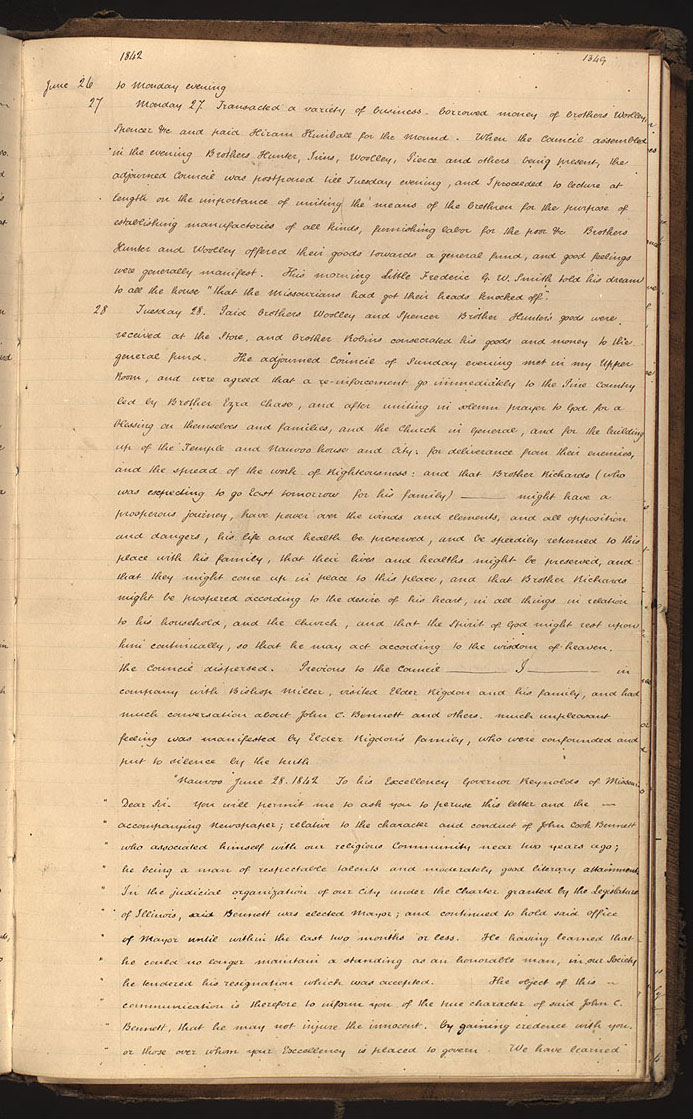 1842 1349
June 26 to Monday evening
27 Monday 27. Transacted a variety of business. borrowed money of Brothers Woolley,
Spencer &c and paid Hiram Kimball for the mound. When the Council assembled
in the evening Brothers, Hunter, Ivins, Woolley, Pierce and others being present, the
adjourned Council was postponed till Tuesday evening, and I proceeded to lecture at
length on the importance of uniting the means of the brethren for the purpose of
establishing manufactories of all kinds, furnishing labor for the poor &c. Brothers
Hunter and Woolley offered their goods towards a general fund, and good feelings
were generally manifest. This morning Little Frederic G. W. Smith told his dream
to all the house "that the Missourians had got their heads knocked off".
28 Tuesday 28. Paid Brothers Woolley and Spencer Brother Hunter's goods were
received at the Store, and Brother Robins consecrated his goods and money to the
general fund. The adjourned Council of Sunday evening met in my Upper
Room, and were agreed that a re-inforcement go immediately to the Pine Country
led by Brother Ezra Chase, and after uniting in solemn prayer to God for a
blessing on themselves and families, and the Church in General, and for the building
up of the Temple and Nauvoo house and City; for deliverance from their enemies,
and the spread of the work of Righteousness: and that Brother Richards (who
was expecting to go East tomorrow for his family) — might have a
prosperous journey, have power over the winds and elements, and all opposition
and dangers, his life and health be preserved, and be speedily returned to this
place with his family, that their lives and healths might be preserved, and
that they might come up in peace to this place, and that Brother Richards
might be prospered according to the desire of his heart, in all things in relation
to his household, and the Church, and that the Spirit of God might rest upon
him continually, so that he may act according to the wisdom of heaven.
the Council dispersed. Previous to the Council — I — in
company with Bishop Miller, visited Elder Rigdon and his family, and had
much conversation about John C. Bennett and others. much unpleasant
feeling was manifested by Elder Rigdon's family, who were confounded and
put to silence by the truth
"Nauvoo June 28. 1842 To his Excellency Governor Reynolds of Missouri
" Dear Sir. You will permit me to ask you to peruse this letter and the —
" accompanying newspaper; relative to the character and conduct of John Cook Bennett
" who associated himself with our religious Community near two years ago;
" he being a man of respectable talents and moderately good literary attainments
" In the judicial organization of our City under the Charter granted by the Legislature
" of Illinois, said Bennett was elected Mayor; and continued to hold said office
" of Mayor until within the last two months or less. He having learned that
" he could no longer maintain a standing as an honorable man, in our Society
" he tendered his resignation which was accepted. The object of this —
" communication is therefore to inform you of the true character of said John C.
" Bennett, that he may not injure the innocent. By gaining credence with you,
" or those over whom your Excellency is placed to govern. We have learned